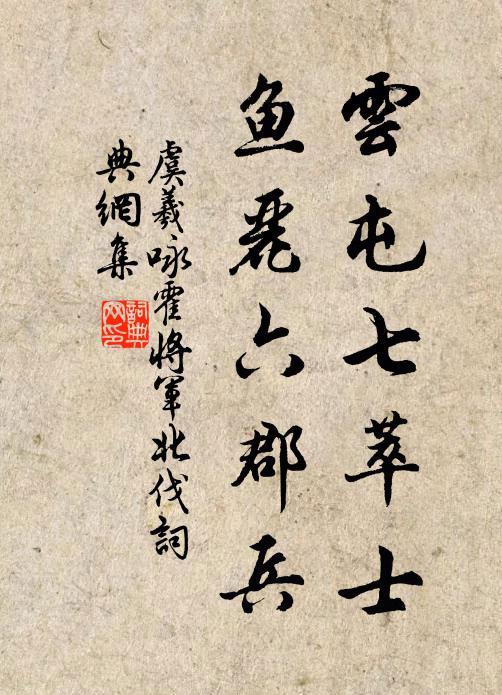 雲屯七萃士
鱼麗六郡兵
虞羲咏霍將軍北伐詞
典網集
詞典
网印